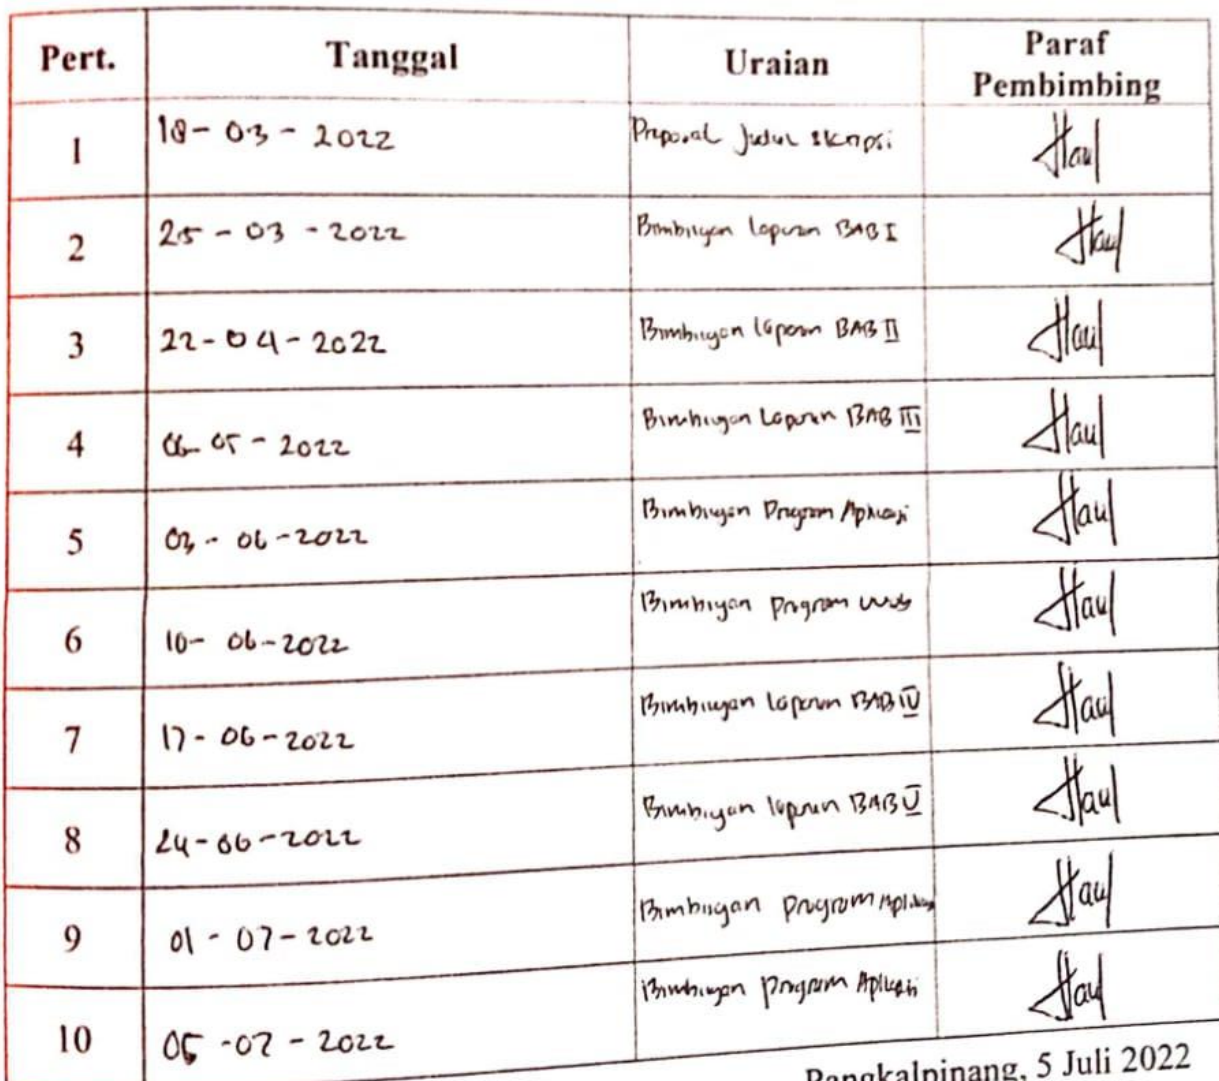 Pert. Tanggal Uraian Paraf
Pembimbing
1 18-03-2022 Proposal Judul Skripsi
2 25-03-2022 Bimbingan laporan BAB I
3 22-04-2022 Bimbingan laporan BAB II
4 06-05-2022 Bimbingan Laporan BAB III
5 03-06-2022 Bimbingan Program Aplikasi
6 10-06-2022 Bimbingan program web
7 17-06-2022 Bimbingan laporan BAB IV
8 24-06-2022 Bimbingan laporan BAB V
9 01-07-2022 Bimbingan program Aplikasi
10 05-07-2022 Bimbingan program Aplikasi
Pangkalpinang, 5 Juli 2022